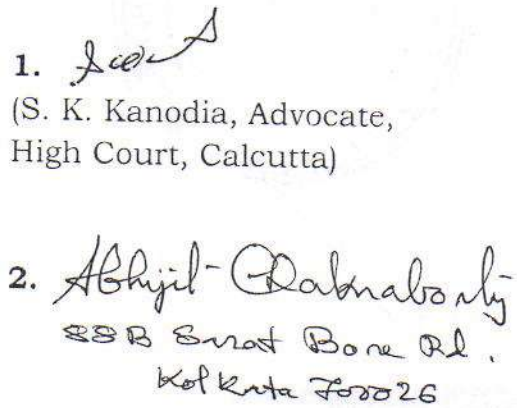 1.
(S. K. Kanodia, Advocate,
High Court, Calcutta)
2. Abhijit Chakraborty
88B Sarat Bose Rd.
Kolkata 700026